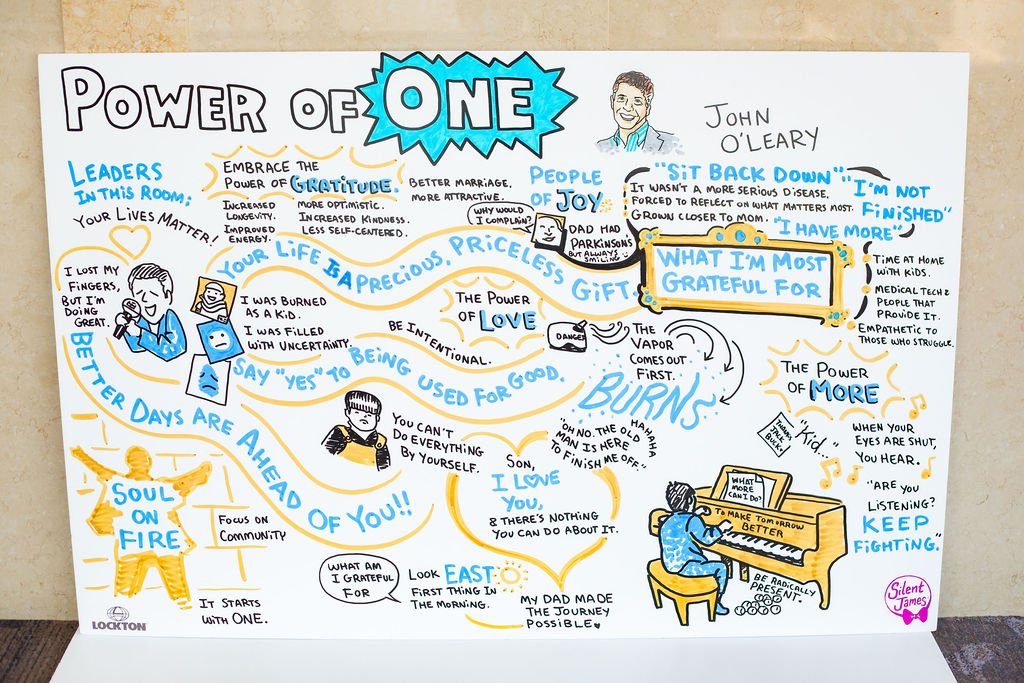 POWER OF ONE
JOHN
O'LEARY
LEADERS
IN THIS ROOM:
YOUR LIVES MATTER!
EMBRACE THE
POWER OF GRATITUDE.
INCREASED
LONGEVITY.
IMPROVED
ENERGY.
MORE OPTIMISTIC.
INCREASED KINDNESS.
LESS SELF-CENTERED.
BETTER MARRIAGE.
MORE ATTRACTIVE.
PEOPLE
OF JOY
WHY WOULD
I COMPLAIN?
DAD HAD
PARKINSONS
BUT ALWAYS
SMILING
"SIT BACK DOWN"
IT WASN'T A MORE SERIOUS DISEASE.
FORCED TO REFLECT ON WHAT MATTERS MOST.
GROWN CLOSER TO MOM.
"I'M NOT
FINISHED"
"I HAVE MORE"
WHAT I'M MOST
GRATEFUL FOR
TIME AT HOME
WITH KIDS.
MEDICAL TECH &
PEOPLE THAT
PROVIDE IT.
EMPATHETIC TO
THOSE WHO STRUGGLE.
YOUR LIFE IS A PRECIOUS, PRICELESS GIFT.
I LOST MY
FINGERS,
BUT I'M
DOING
GREAT.
I WAS BURNED
AS A KID.
I WAS FILLED
WITH UNCERTAINTY.
BE INTENTIONAL.
THE POWER
OF LOVE
DANGER
THE
VAPOR
COMES OUT
FIRST.
BURNS
SAY "YES" TO BEING USED FOR GOOD.
BETTER DAYS ARE AHEAD OF YOU!!
YOU CAN'T
DO EVERYTHING
BY YOURSELF.
HAHAHA
"OH NO. THE OLD
MAN IS HERE
TO FINISH ME OFF."
SON,
I LOVE
YOU,
& THERE'S NOTHING
YOU CAN DO ABOUT IT.
MY DAD MADE
THE JOURNEY
POSSIBLE
THE POWER
OF MORE
THANKS
JACK
BUCK!
"KID...
WHEN YOUR
EYES ARE SHUT,
YOU HEAR.
"ARE YOU
LISTENING?
KEEP
FIGHTING."
WHAT
MORE
CAN I DO?
TO MAKE TOMORROW
BETTER
BE RADICALLY
PRESENT.
SOUL
ON
FIRE
FOCUS ON
COMMUNITY
IT STARTS
WITH ONE.
WHAT AM
I GRATEFUL
FOR
LOOK EAST
FIRST THING IN
THE MORNING.
LOCKTON
Silent
James